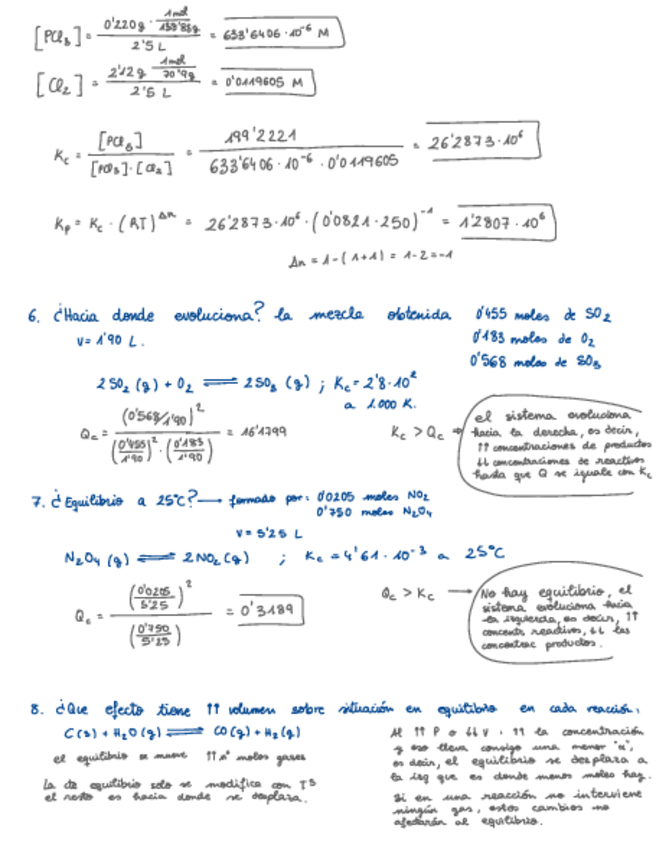 [PCl₃] = (0'220 g · 1mol/139'85g) / 2'5 L = 633'6406 · 10⁻⁶ M
[Cl₂] = (2'12 g · 1mol/70'9g) / 2'5 L = 0'0119605 M
Kc = [PCl₅] / [PCl₃]·[Cl₂] = 199'2221 / 633'6406·10⁻⁶ · 0'0119605 = 26'2873·10⁶
Kp = Kc · (RT)^Δn = 26'2873·10⁶ · (0'0821·250)⁻¹ = 1'2807·10⁶
Δn = 1-(1+1) = 1-2 = -1
6. ¿Hacia donde evoluciona? la mezcla obtenida 0'455 moles de SO₂
V = 1'90 L. 0'183 moles de O₂
0'568 moles de SO₃
2SO₂ (g) + O₂ ⇌ 2SO₃ (g) ; Kc = 2'8·10²
a 1.000 K.
Qc = (0'568/1'90)² / (0'455/1'90)² · (0'183/1'90) = 16'1799
Kc > Qc → el sistema evoluciona
hacia la derecha, es decir,
↑↑ concentraciones de productos
↓↓ concentraciones de reactivos
hasta que Q se iguale con Kc
7. ¿Equilibrio a 25°C? → formado por: 0'0205 moles NO₂
0'750 moles N₂O₄
V = 5'25 L
N₂O₄ (g) ⇌ 2NO₂ (g) ; Kc = 4'61·10⁻³ a 25°C
Qc = (0'0205/5'25)² / (0'750/5'25) = 0'3189
Qc > Kc → No hay equilibrio, el
sistema evoluciona hacia
la izquierda, es decir, ↑↑
concents reactivos, ↓↓ las
concentrac productos.
8. ¿Que efecto tiene ↑↑ volumen sobre situación en equilibrio en cada reacción:
C(s) + H₂O(g) ⇌ CO(g) + H₂(g)
el equilibrio se mueve ↑↑ nº moles gases
la de equilibrio solo se modifica con Tª
el resto es hacia donde se desplaza.
Al ↑↑ P o ↓↓ V · ↑↑ la concentración
y eso lleva consigo una menor "n",
es decir, el equilibrio se desplaza a
la izq que es donde menos moles hay.
Si en una reacción no interviene
ningún gas, estos cambios no
afectarán al equilibrio.